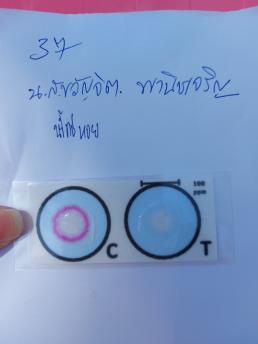 37
น.ส.ขวัญจิต. พานิชเจริญ
น้ำใสหอย
100
ppm
C
T